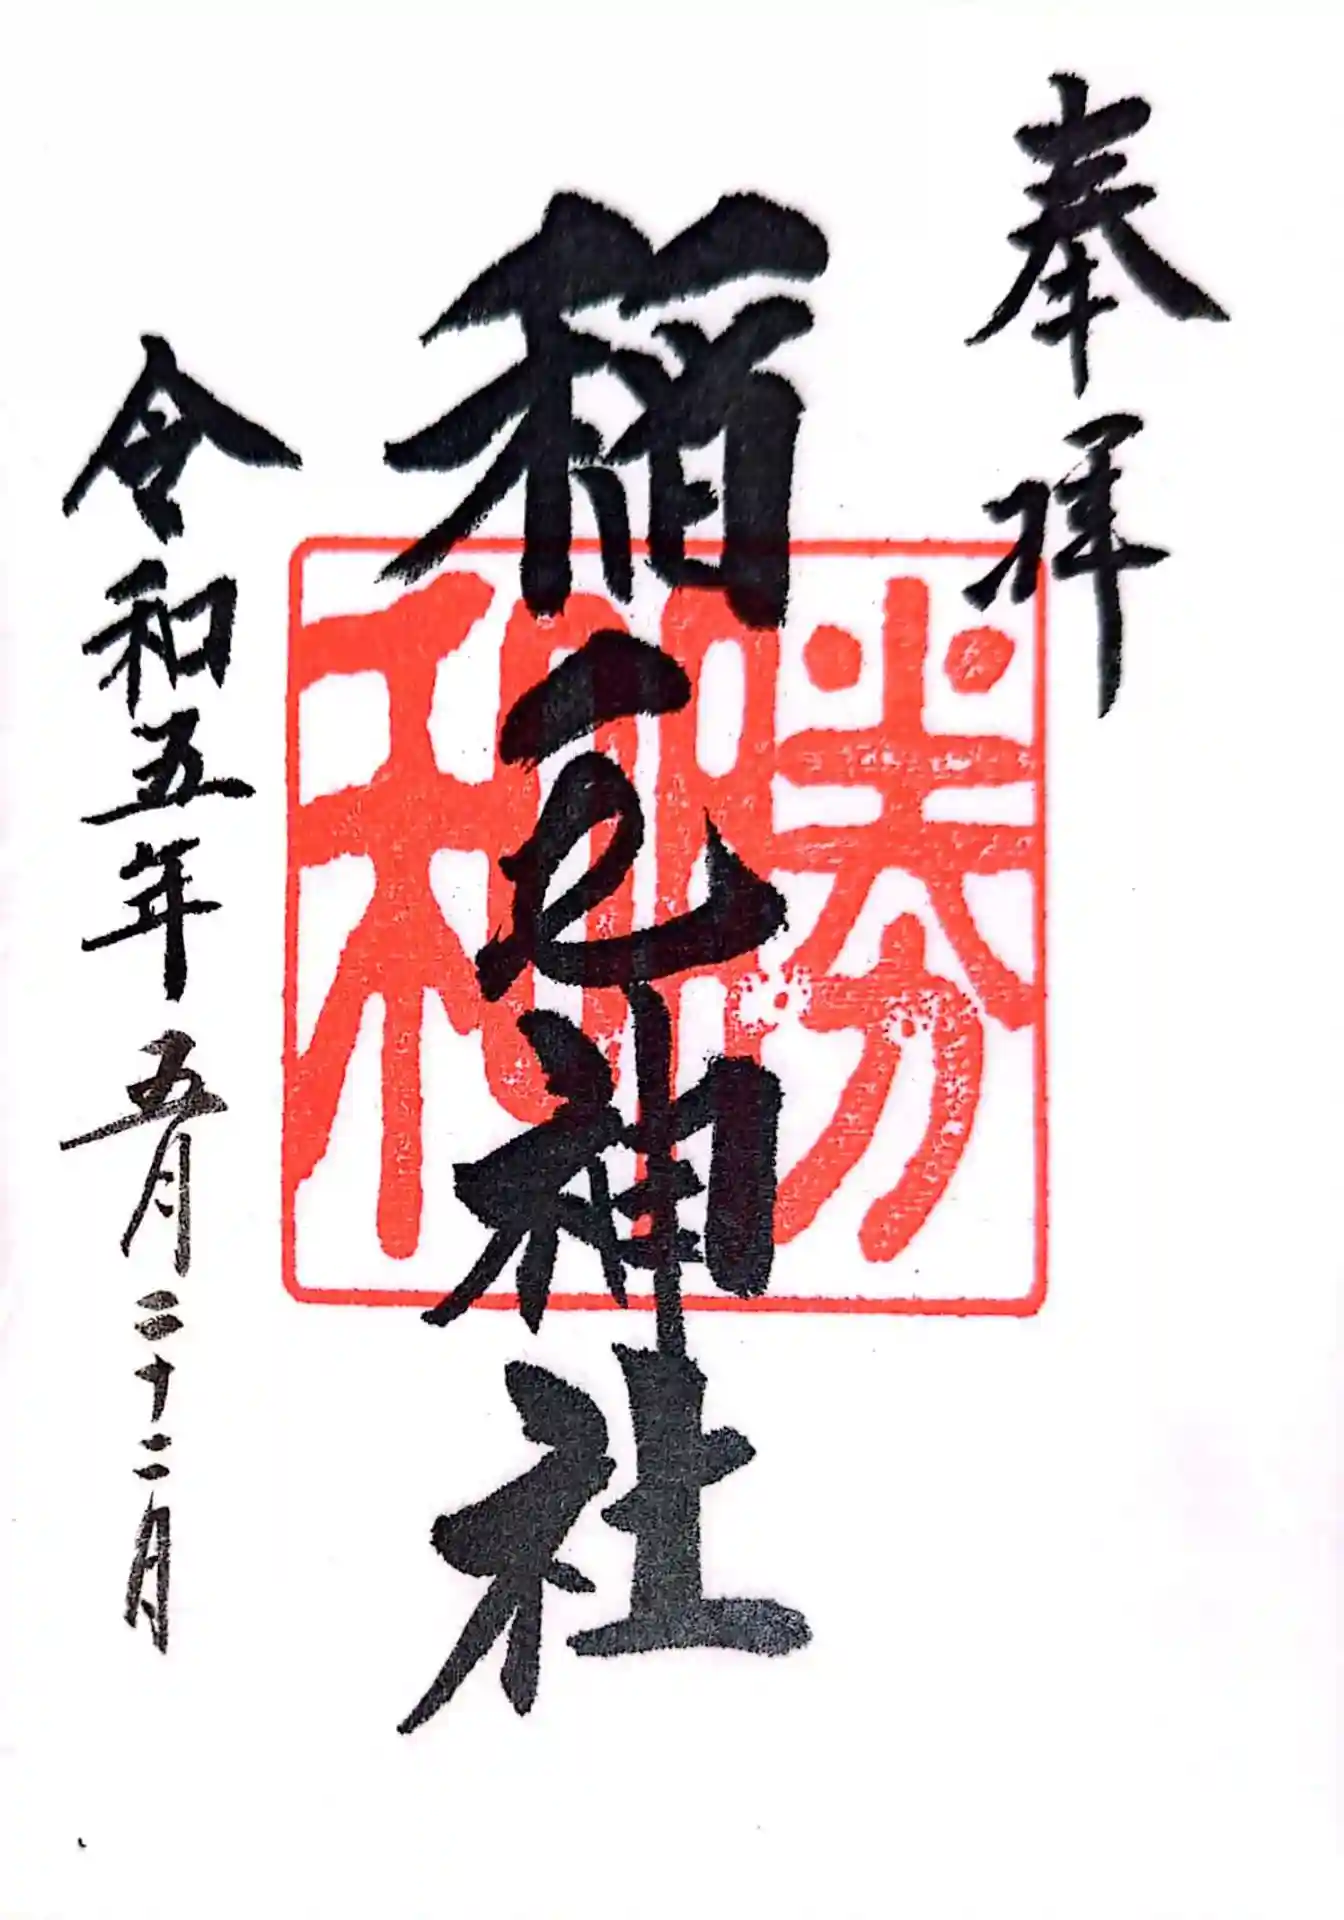 奉拝
稲毛神社
勝和
令和五年五月二十二日